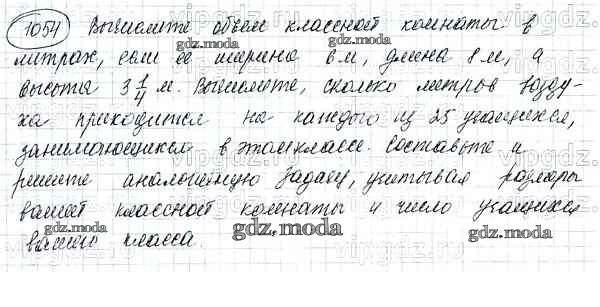 1054 Вычислите объем классной комнаты в
литрах, если ее ширина 6 м, длина 8 м, а
высота 3 1/4 м. Вычислите, сколько литров возду-
ха приходится на каждого из 25 учащихся,
занимающихся в этом классе. Составьте и
решите аналогичную задачу, учитывая размеры
вашей классной комнаты и число учащихся
вашего класса.
gdz.moda
gdz.moda
gdz.moda
gdz.moda
gdz.moda
gdz.moda
vipgdz.com